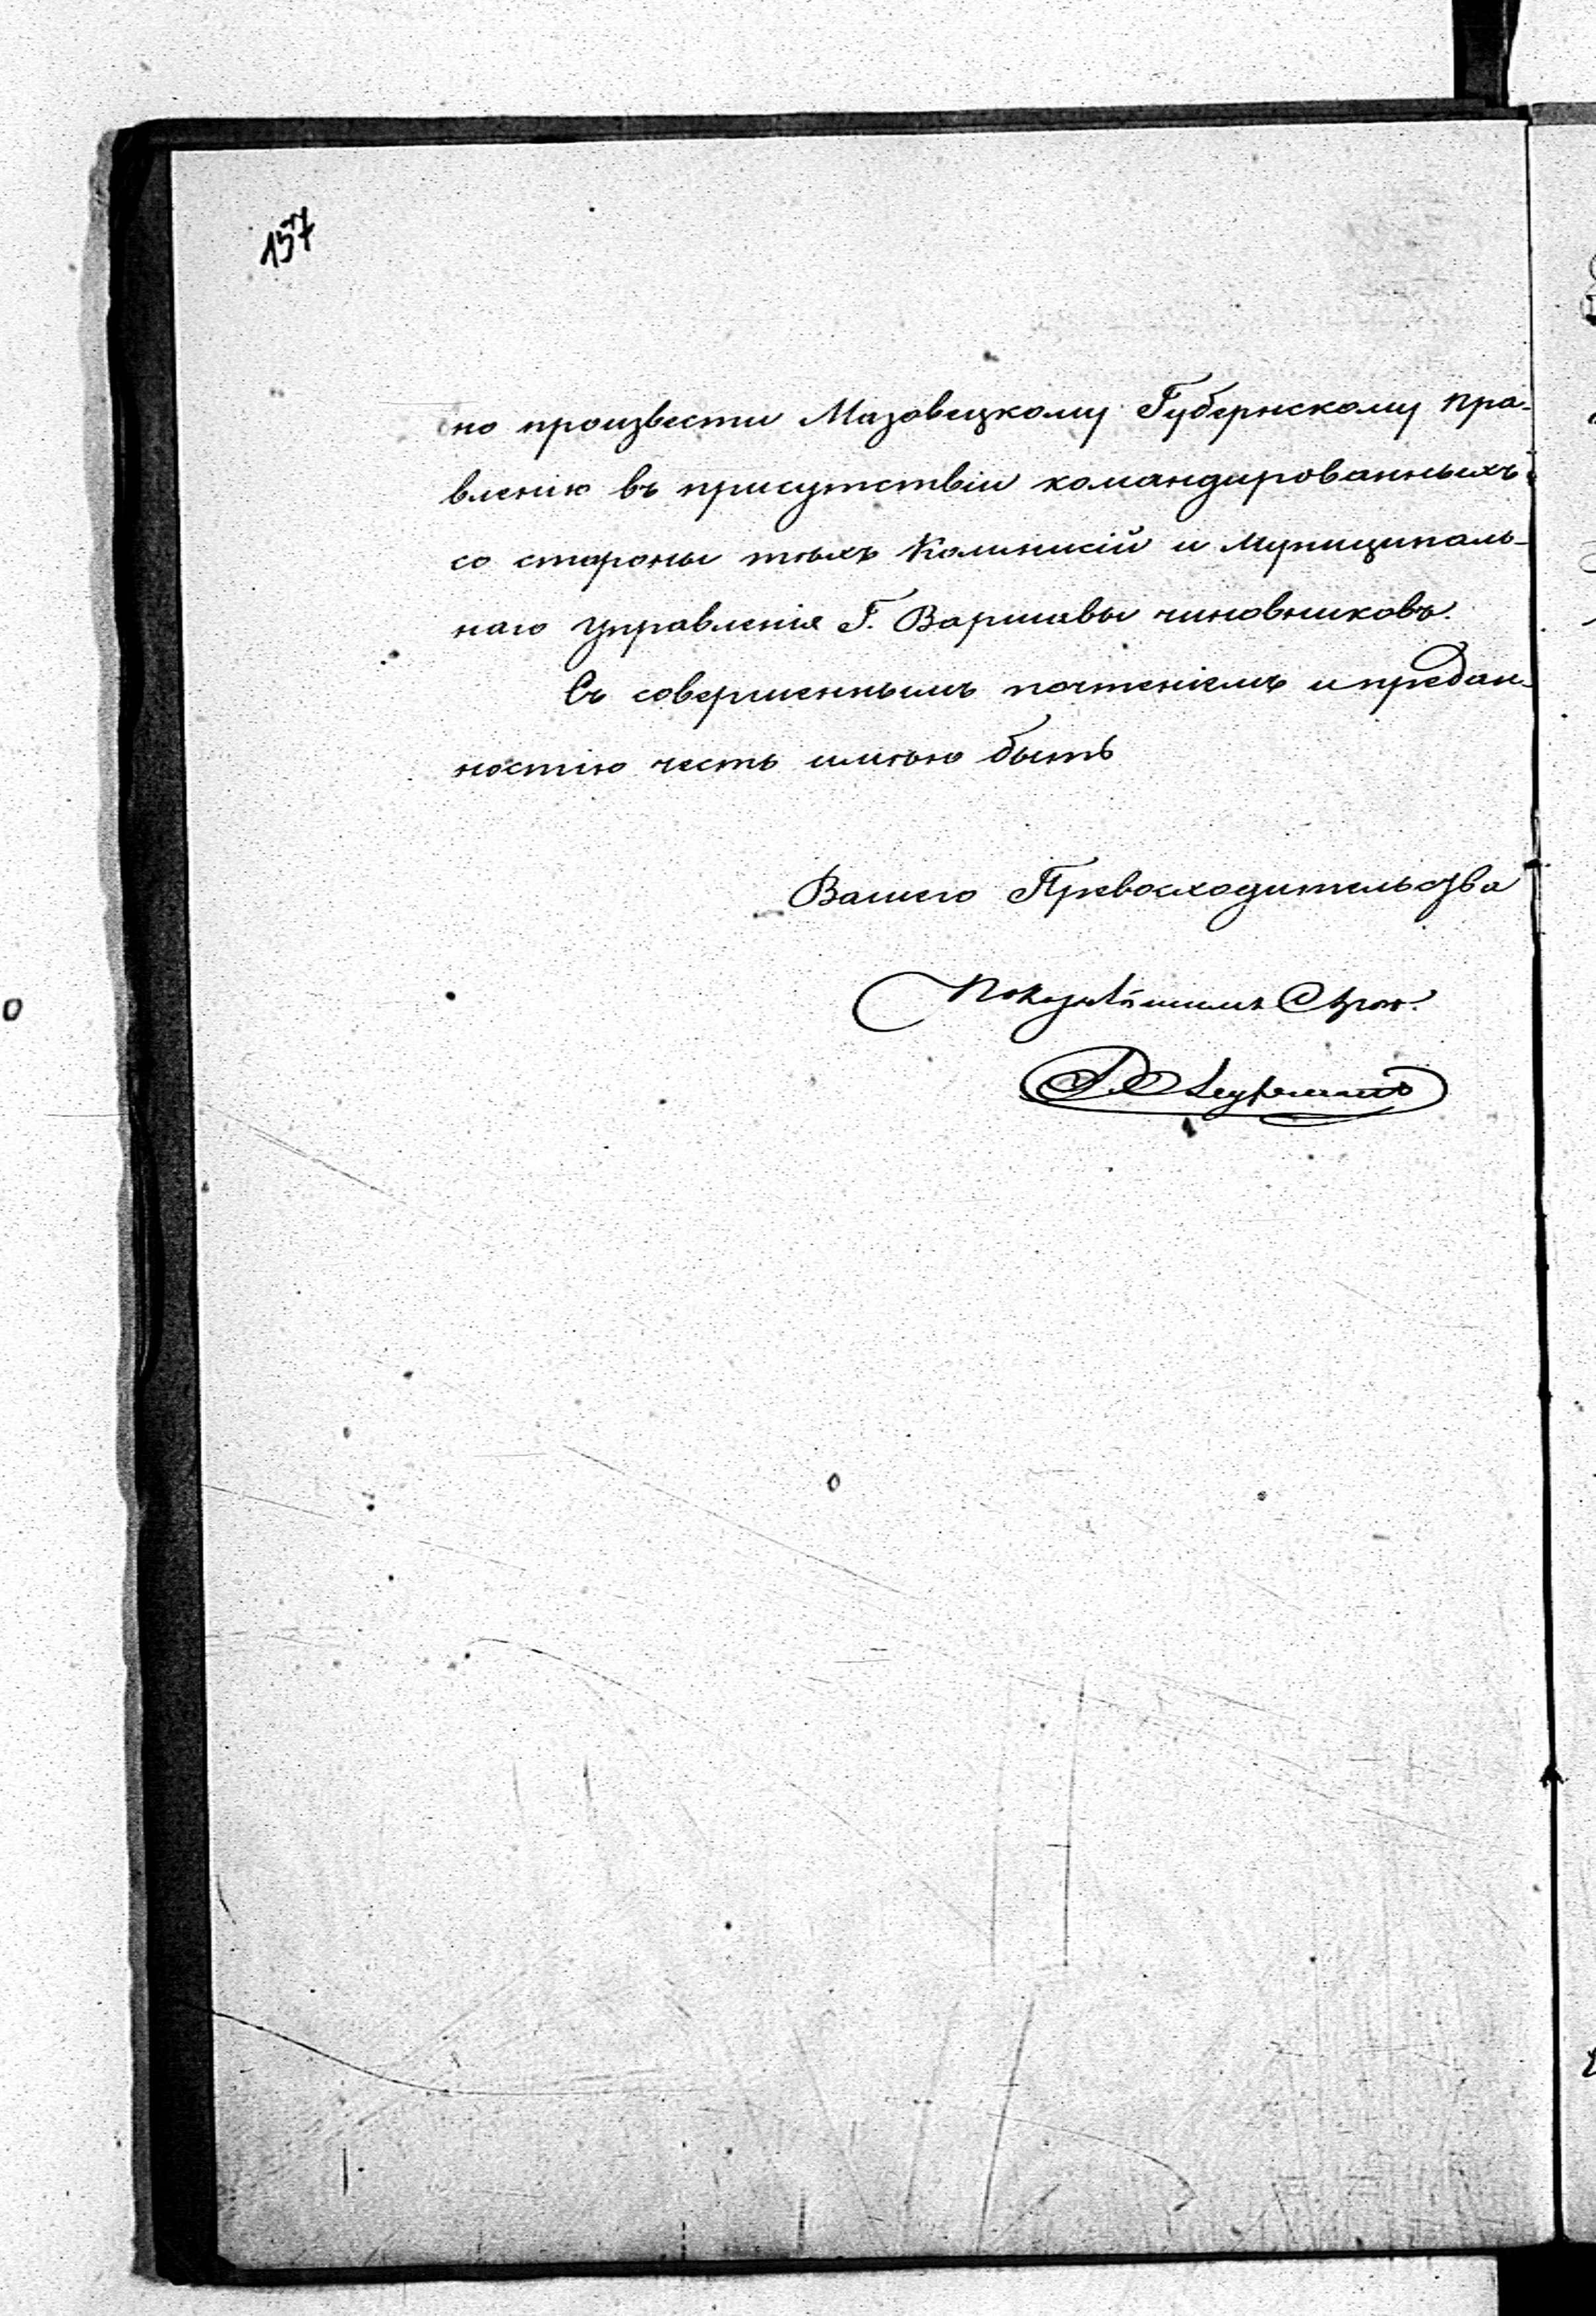 157
но произвести Мазовецкому Губернскому Пра-
вленію въ присутствіи командированныхъ
со стороны тѣхъ Коммисій и Муниципаль-
наго Управленія Г. Варшавы чиновниковъ.
Съ совершеннымъ почтеніемъ и предан-
ностію честь имѣю быть
Вашего Превосходительства